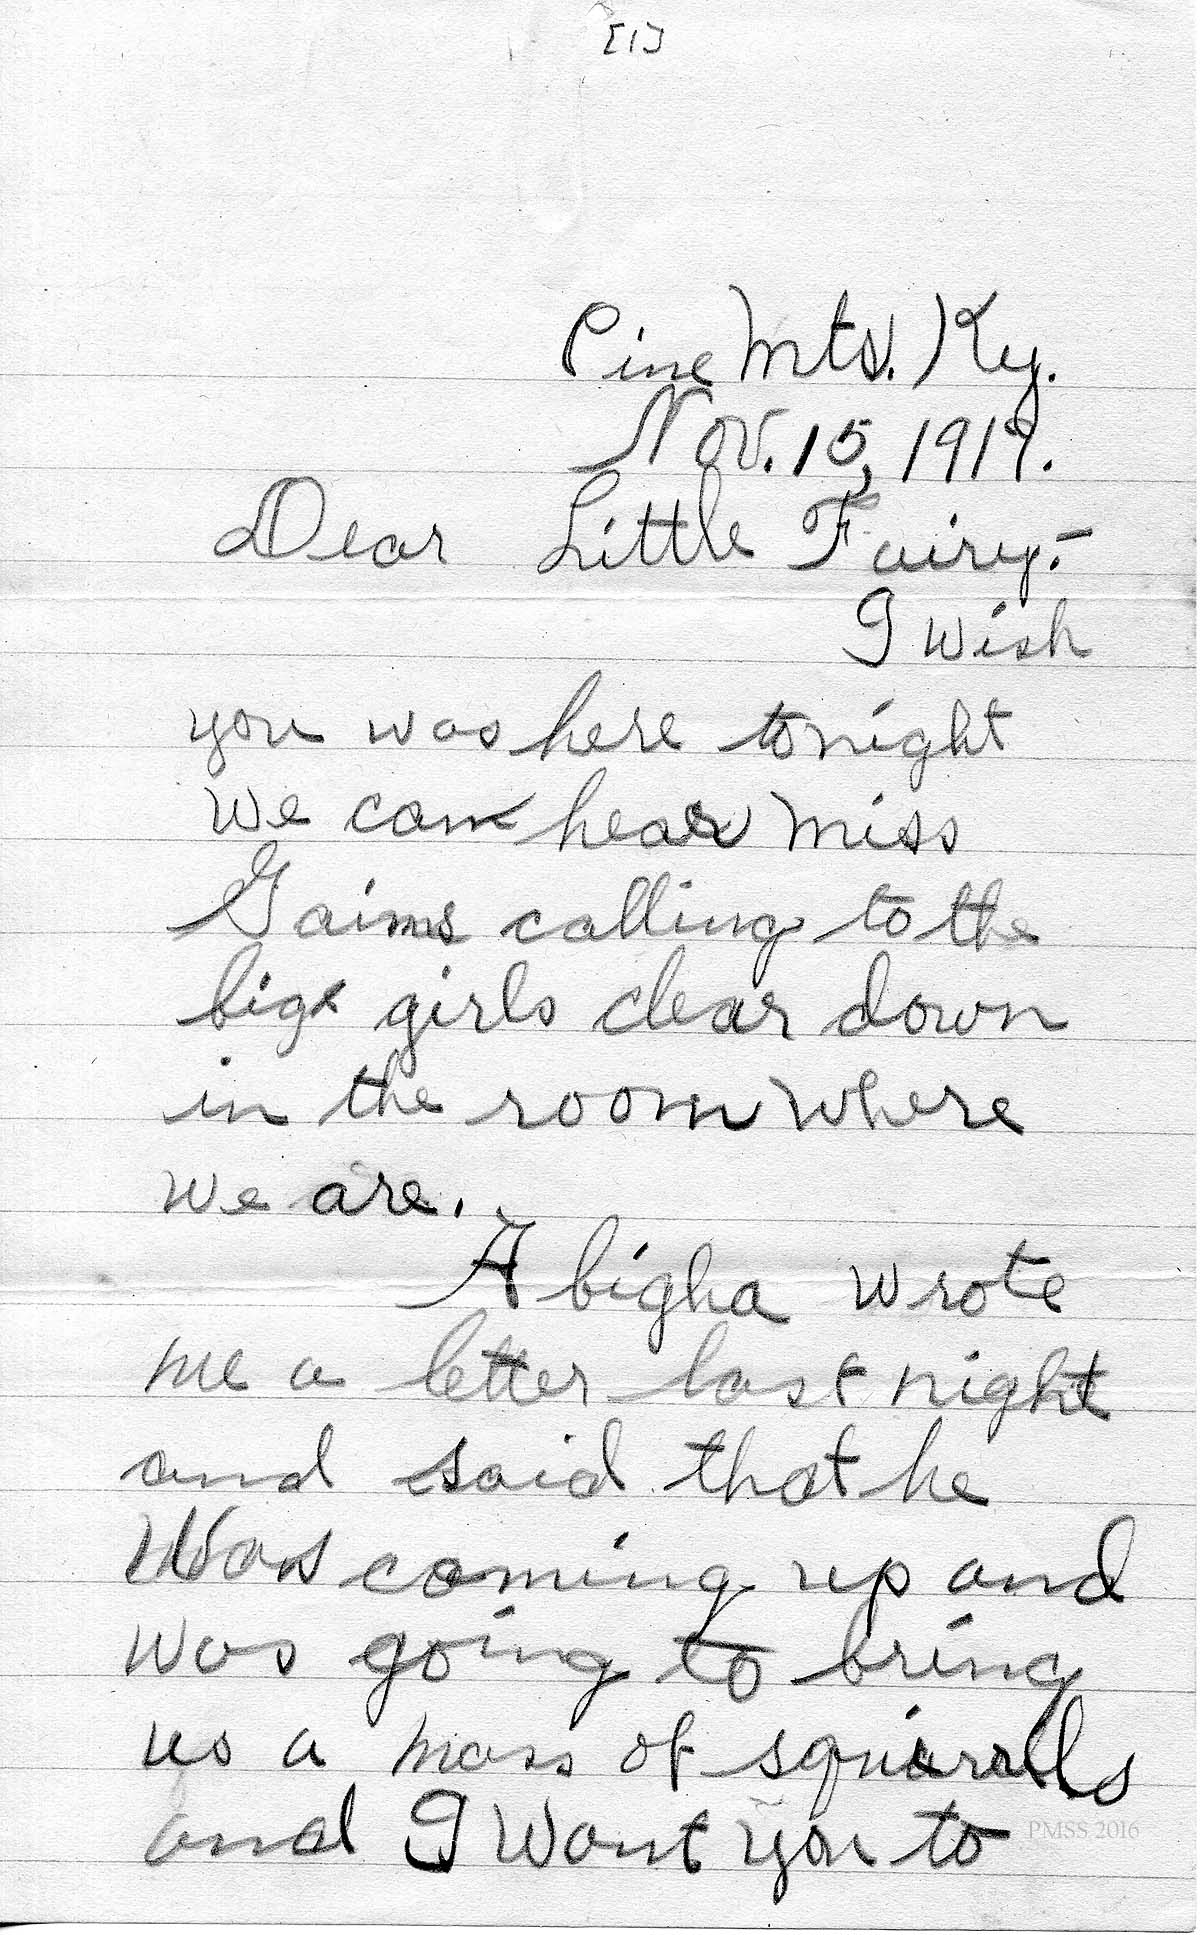 [1]
Pine Mts. Ky.
Nov. 15, 1919.
Dear Little Fairy:-
I wish
you was here tonight
we can hear Miss
Gaims calling to the
big girls clear down
in the room where
we are.
Abigha wrote
me a letter last night
and said that he
Was coming up and
was going to bring
us a mass of squirrels
and I Want you to
PMSS 2016